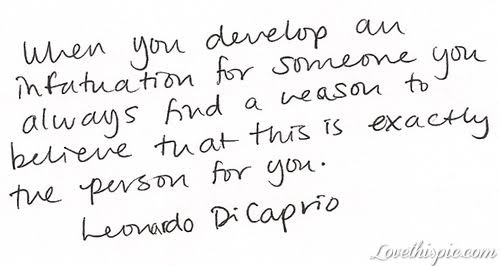 When you develop an
infatuation for someone you
always find a reason to
believe that this is exactly
the person for you.
Leonardo DiCaprio
Lovethispic.com